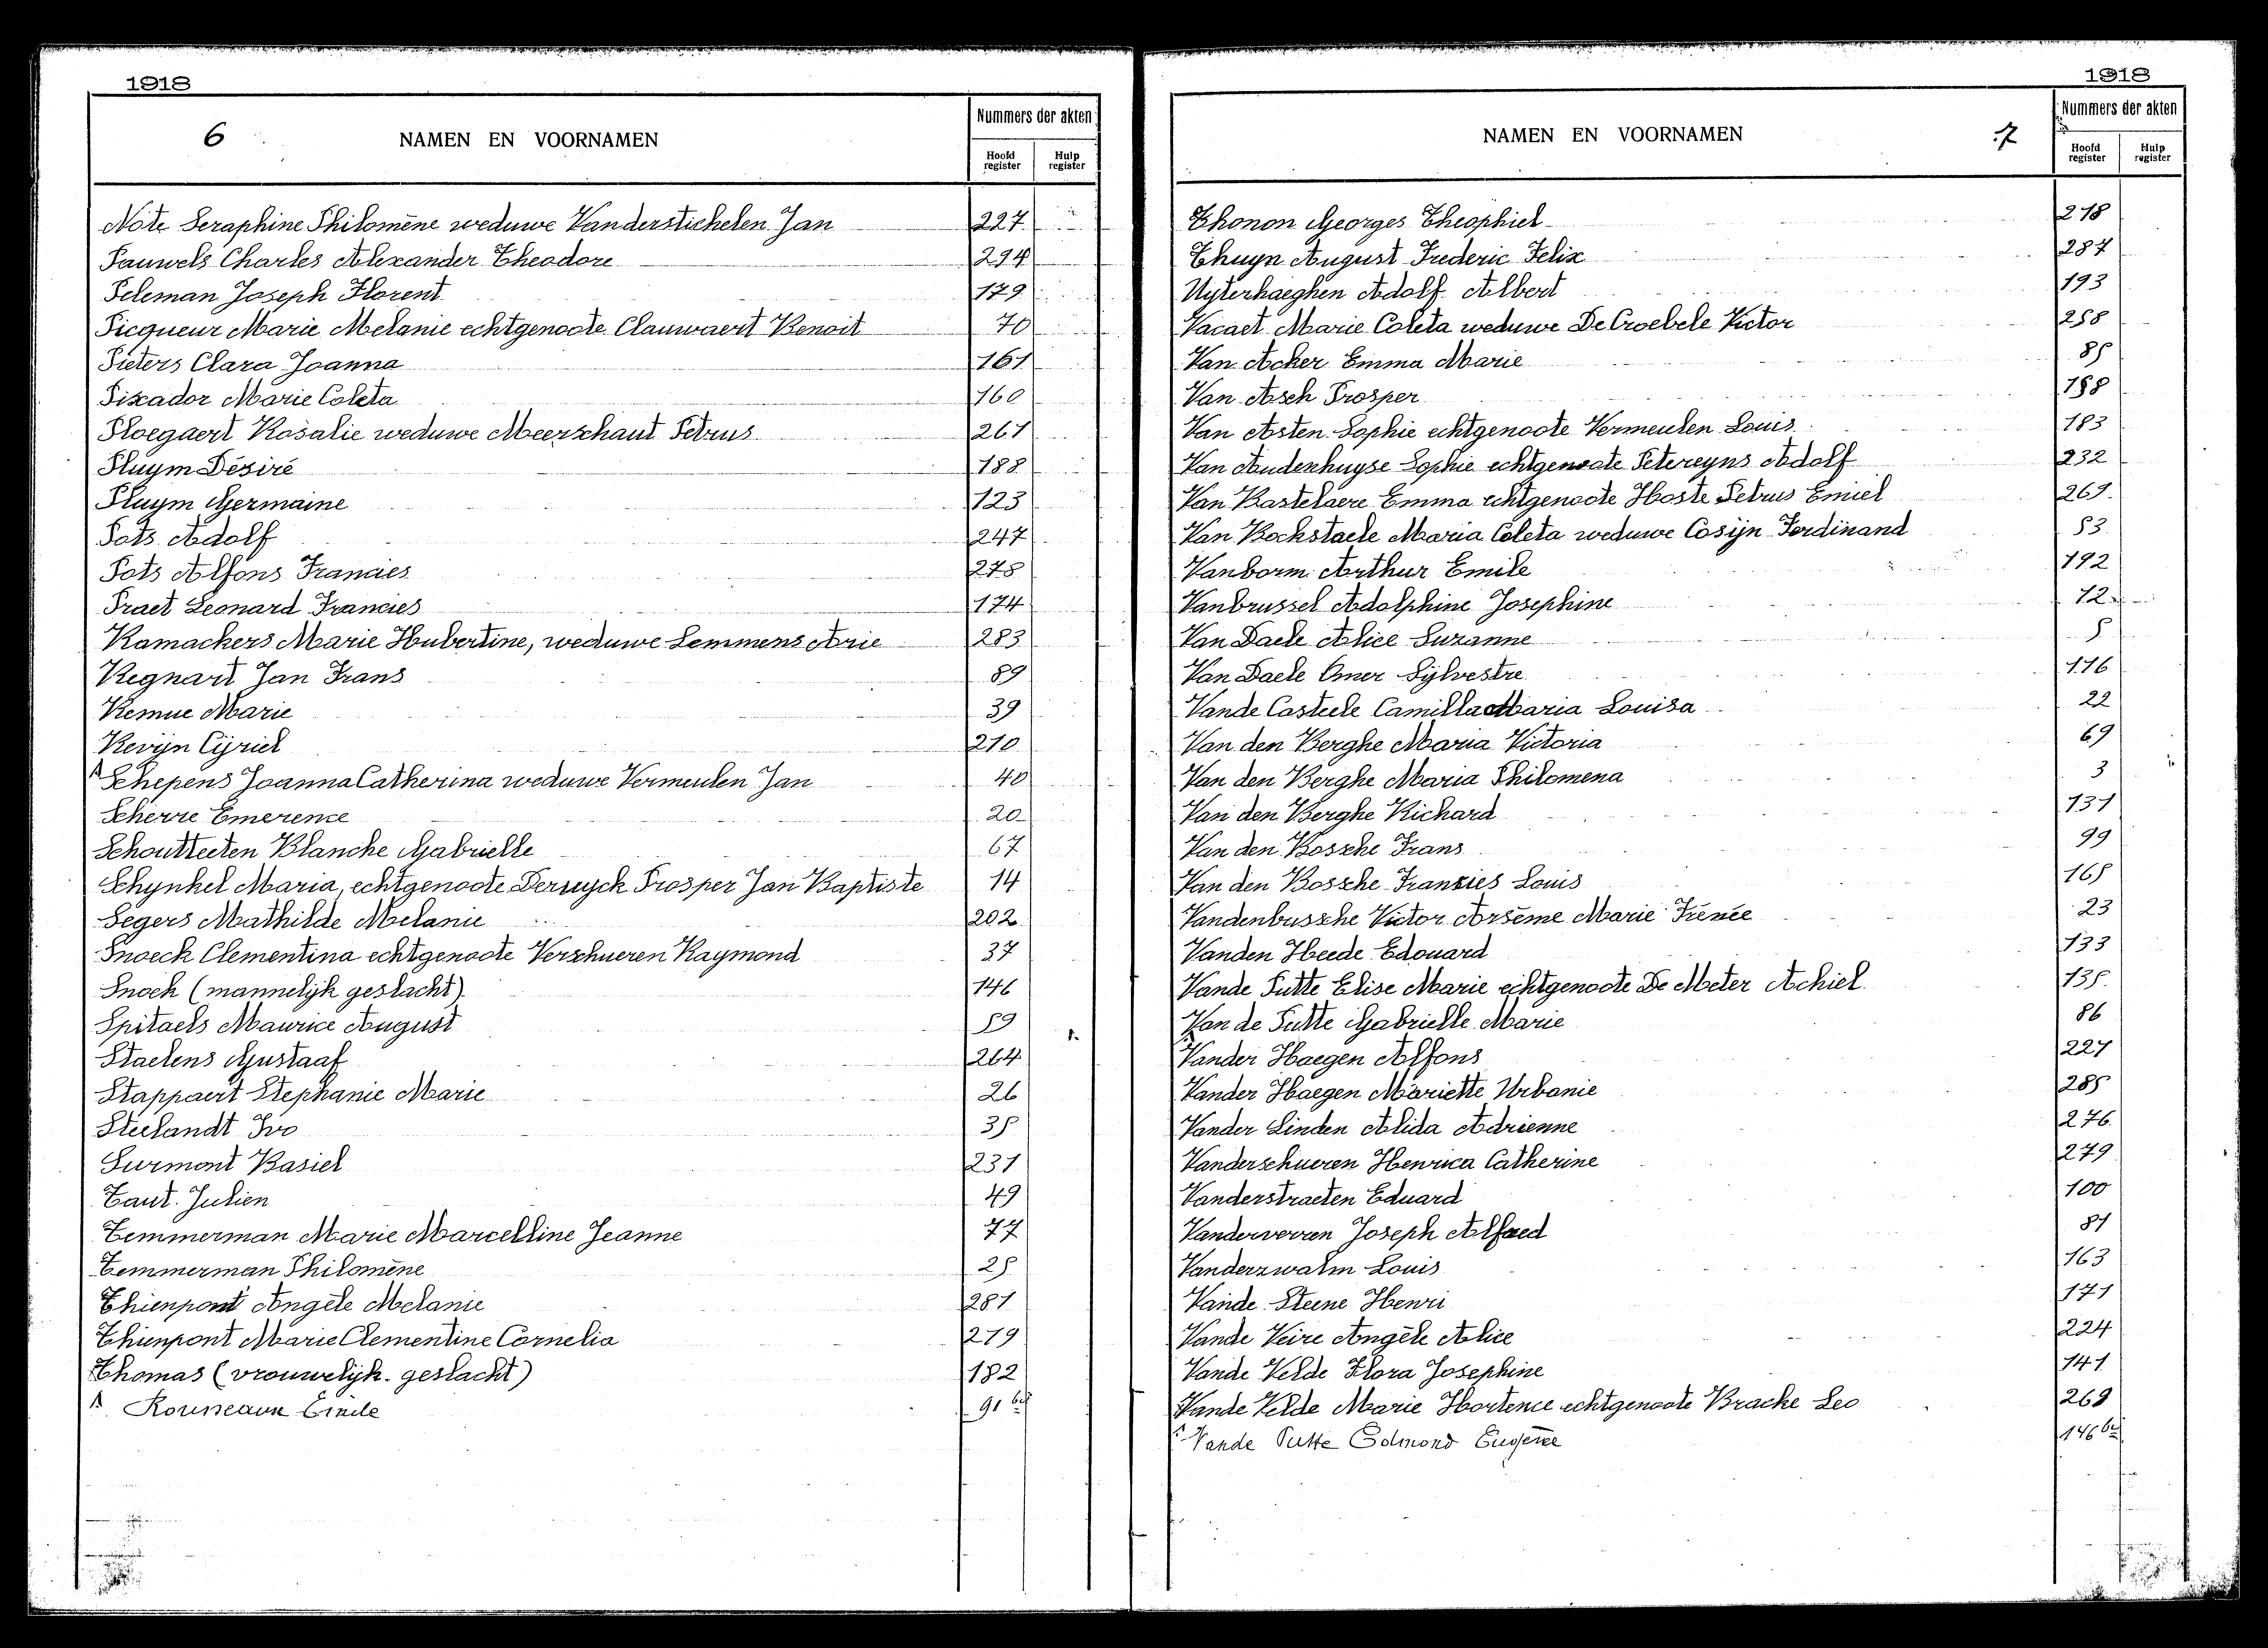 1918
6 NAMEN EN VOORNAMEN Nummers der akten
Hoofd register Hulp register
Note Seraphine Philomène weduwe Vanderstichelen Jan 227
Pauwels Charles Alexander Theodore 294
Peleman Joseph Florent 179
Picqueur Marie Melanie echtgenoote Clauwaert Benoit 70
Pieters Clara Joanna 161
Pixador Marie Coleta 160
Ploegaert Rosalie weduwe Meerschaut Petrus 261
Pluym Désiré 188
Pluym Germaine 123
Pots Adolf 247
Pots Alfons Francies 278
Praet Leonard Francies 174
Ramachers Marie Hubertine, weduwe Lemmens Arie 283
Regnart Jan Frans 89
Remue Marie 39
Revijn Cijriel 210
Schepens Joanna Catherina weduwe Vermeulen Jan 40
Scherre Emerence 20
Schoutteeten Blanche Gabrielle 67
Schynkel Maria, echtgenoote Deruyck Prosper Jan Baptiste 14
Segers Mathilde Melanie 202
Snoeck Clementina echtgenoote Verschueren Raymond 37
Snoek (mannelijk geslacht) 146
Spitaels Maurice August 59
Staelens Gustaaf 264
Stappaert Stephanie Marie 26
Steelandt Ivo 35
Surmont Basiel 231
Taut. Julien 49
Temmerman Marie Marcelline Jeanne 77
Temmerman Philomène 25
Thienpont Angèle Melanie 281
Thienpont Marie Clementine Cornelia 219
Thomas (vrouwelijk. geslacht) 182
Rousseaux Emile 91 bis
1918
NAMEN EN VOORNAMEN 7 Nummers der akten
Hoofd register Hulp register
Thonon Georges Theophiel 218
Thuyn August Frederic Felix 287
Uyterhaeghen Adolf Albert 193
Vacaet Marie Coleta weduwe De Croebele Victor 258
Van Acker Emma Marie 85
Van Asch Prosper 158
Van Asten Sophie echtgenoote Vermeulen Louis 183
Van Audenhuyse Sophie echtgenoote Petereyns Adolf 232
Van Bastelaere Emma echtgenoote Hoste Petrus Emiel 269
Van Bockstaele Maria Coleta weduwe Cosijn Ferdinand 53
Vanborm Arthur Emile 192
Vanbrussel Adolphine Josephine 12
Van Daele Alice Suzanne 5
Van Daele Omer Sijlvestre 116
Vande Casteele Camilla Maria Louisa 22
Van den Berghe Maria Victoria 69
Van den Berghe Maria Philomena 3
Van den Berghe Richard 131
Van den Bossche Frans 99
Van den Bossche Francies Louis 165
Vandenbussche Victor Arsème Marie Irenée 23
Vanden Heede Edouard 133
Vande Putte Elise Marie echtgenoote De Meter Achiel 135
Van de Putte Gabrielle Marie 86
Vander Haegen Alfons 227
Vander Haegen Mariette Urbanie 285
Vander Linden Alida Adrienne 276
Vanderschueren Henrica Catherine 279
Vanderstraeten Eduard 100
Vanderverren Joseph Alfred 81
Vanderzwalm Louis 163
Vande Steene Henri 171
Vande Veire Angèle Alice 224
Vande Velde Flora Josephine 141
Vande Velde Marie Hortence echtgenoote Brache Leo 268
Vande Putte Edmond Eugène 146 bis